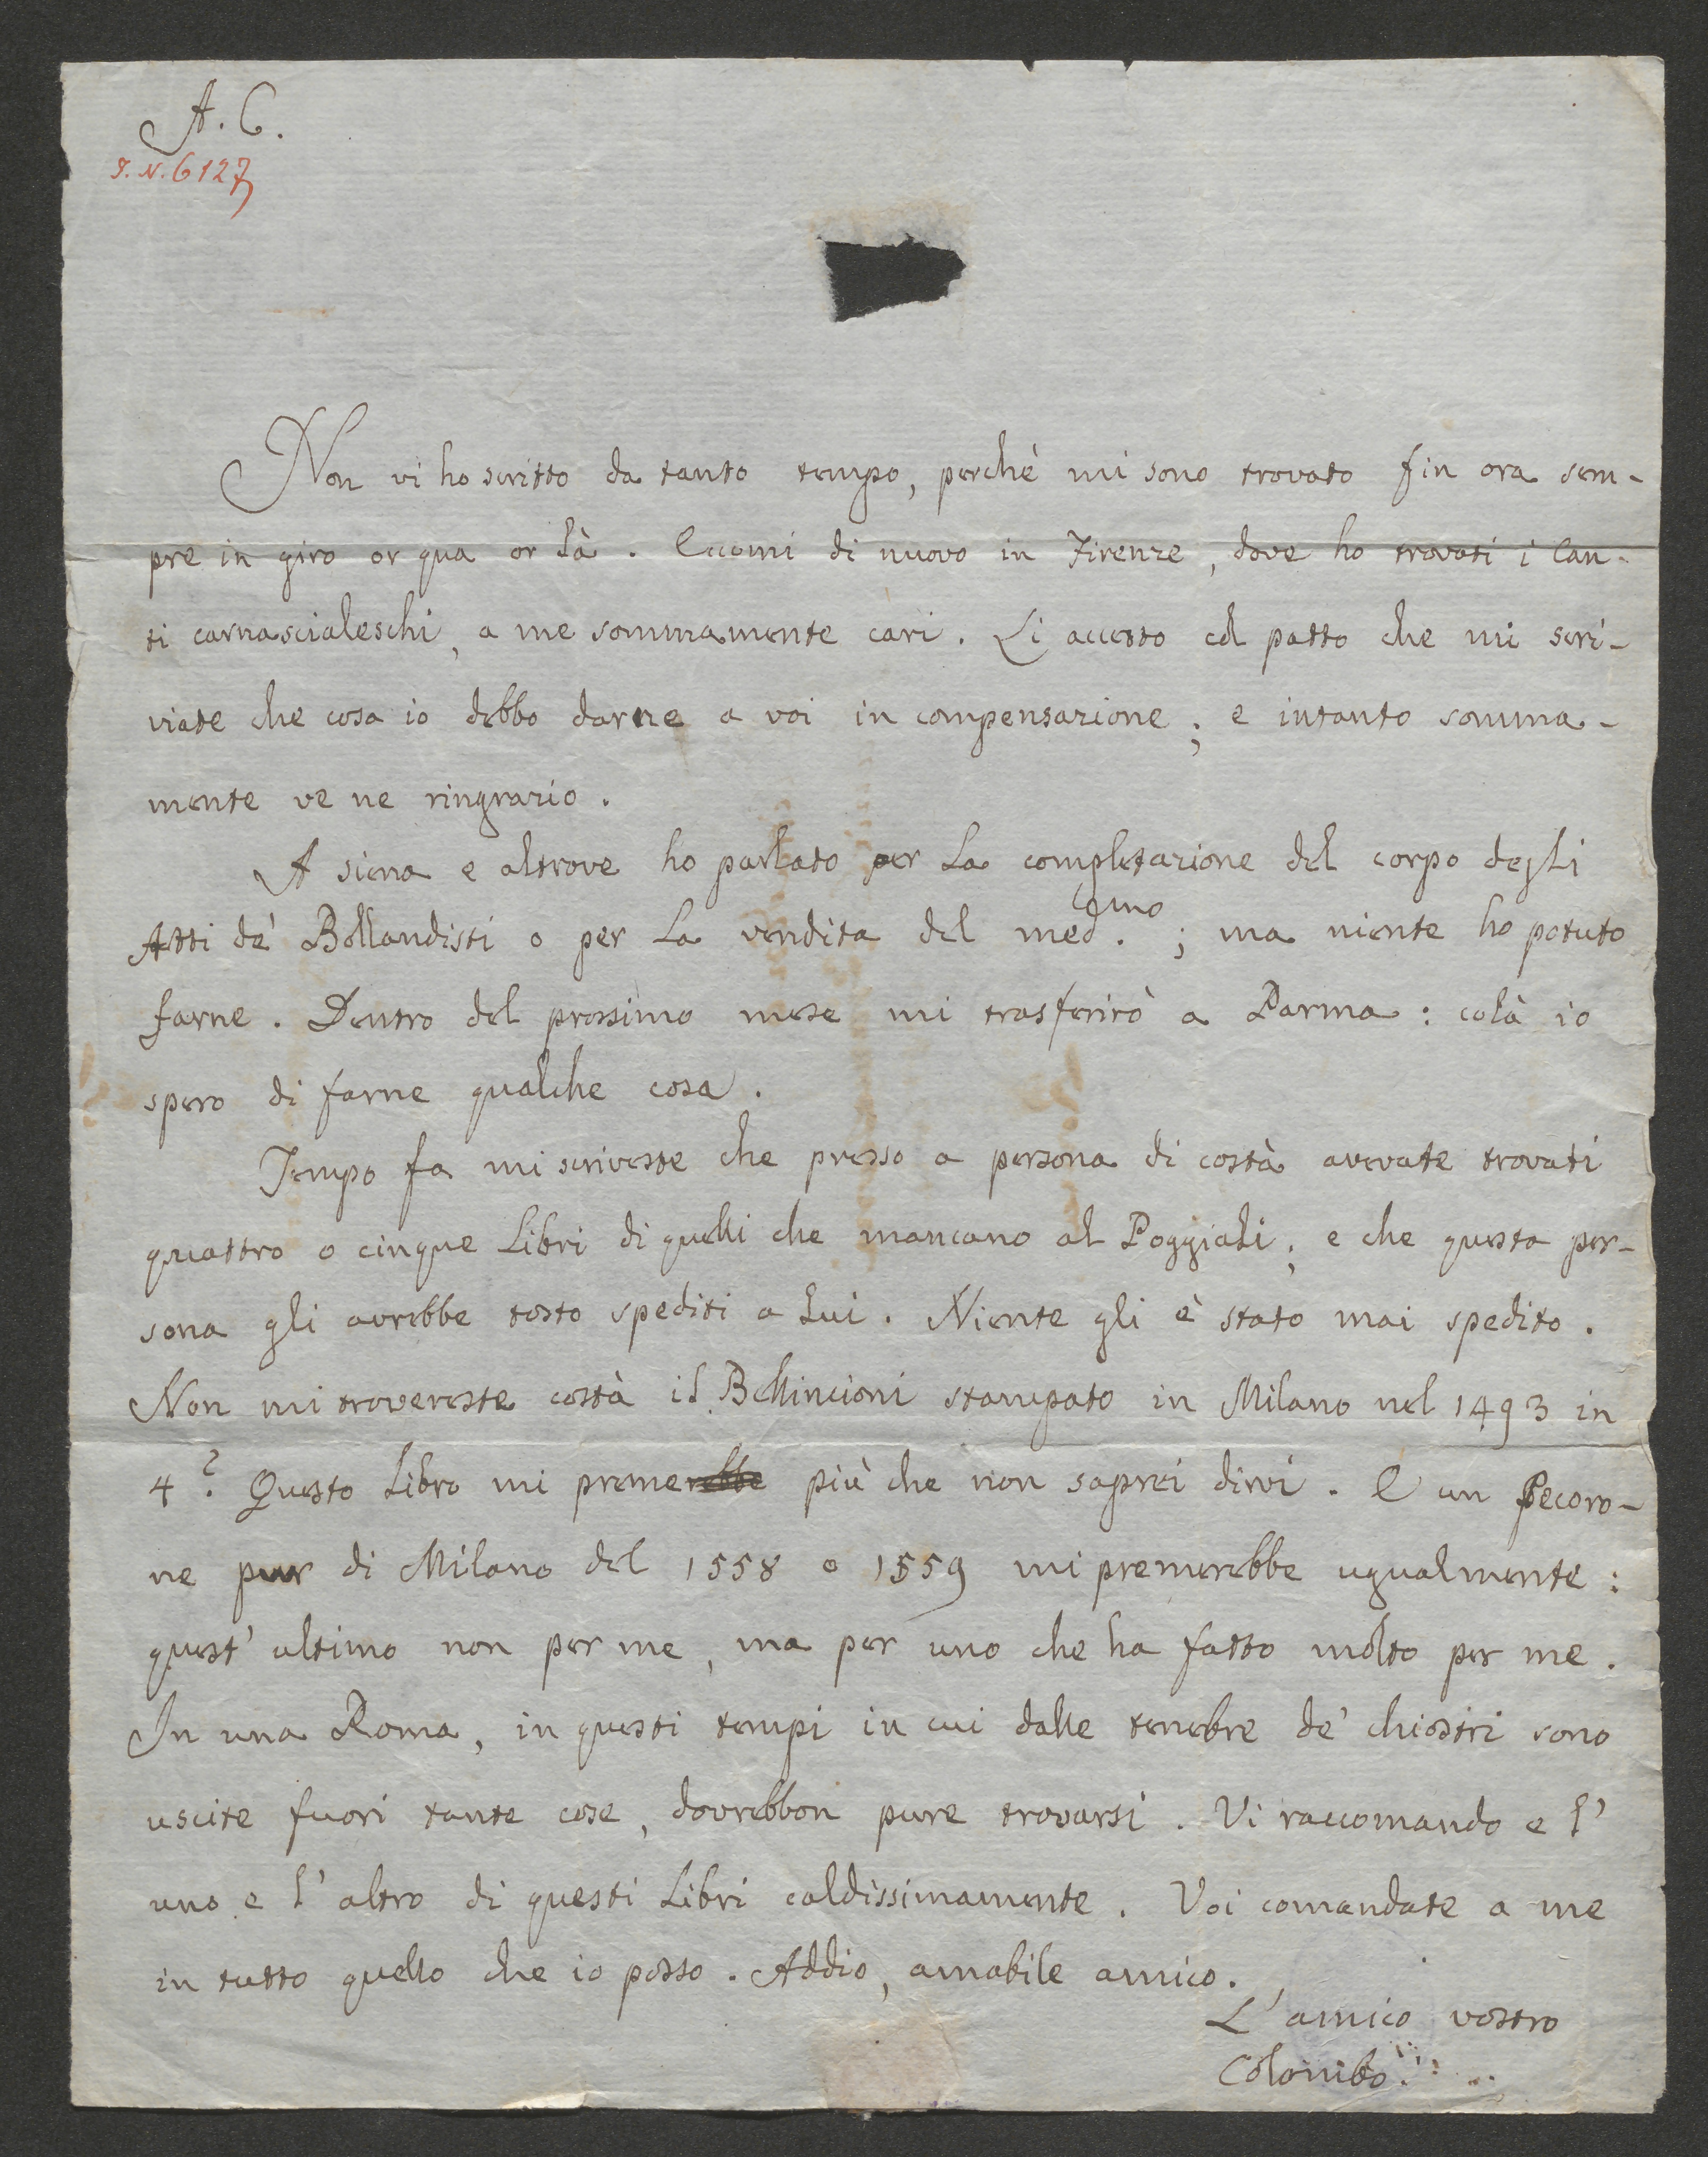 A. C.
I. N. 6127
Non vi ho scritto da tanto tempo, perchè mi sono trovato fin ora sem-
pre in giro or qua or là. Eccomi di nuovo in Firenze, dove ho trovati i Can-
ti carnascialeschi, a me sommamente cari. Li accetto col patto che mi scri-
viate che cosa io debbo darne a voi in compensazione; e intanto somma-
mente ve ne ringrazio.
A Siena e altrove ho parlato per la completazione del corpo degli
Atti de' Bollandisti o per la vendita del med.smo; ma niente ho potuto
farne. Dentro del prossimo mese mi trasferirò a Parma: colà io
spero di farne qualche cosa.
Tempo fa mi scriveste che presso a persona di costà avevate trovati
quattro o cinque libri di quelli che mancano al Poggiali; e che questa per-
sona gli avrebbe tosto spediti a lui. Niente gli è stato mai spedito.
Non mi trovereste costà il Bellincioni stampato in Milano nel 1493 in
4? Questo libro mi premerebbe più che non saprei dirvi. E un Pecoro-
ne pur di Milano del 1558 o 1559 mi premerebbe ugualmente:
quest' ultimo non per me, ma per uno che ha fatto molto per me.
In una Roma, in questi tempi in cui dalle tenebre de' chiostri sono
uscite fuori tante cose, dovrebbon pure trovarsi. Vi raccomando e l'
uno e l' altro di questi libri caldissimamente. Voi comandate a me
in tutto quello che io posso. Addio, amabile amico.
L' amico vostro
Colombo.